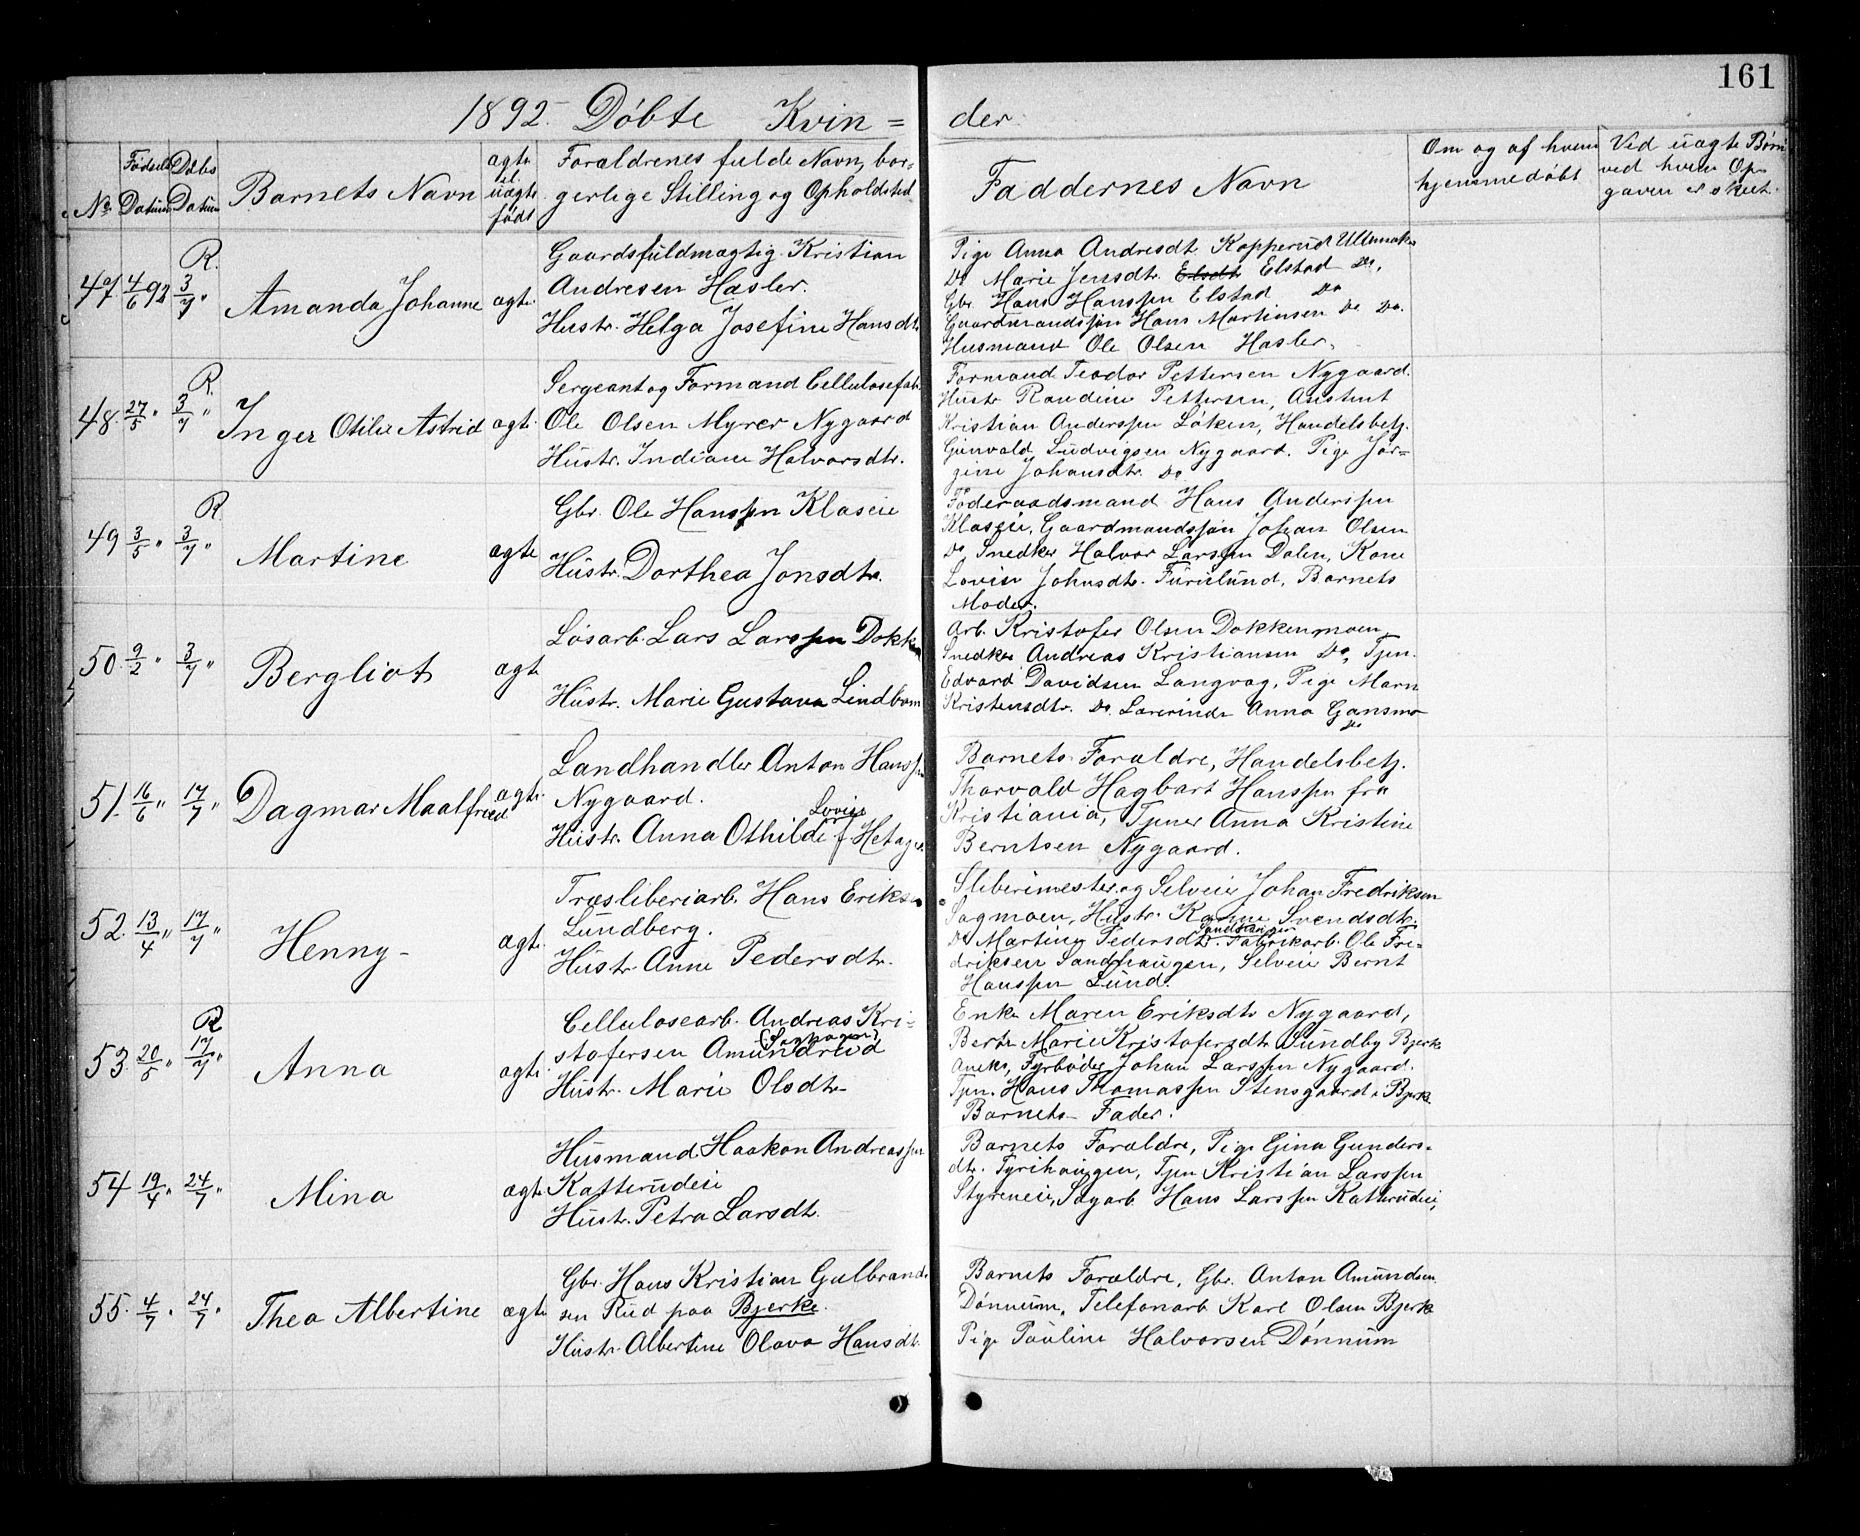 161
1892. Döbte Kvin=
der.
No
Födsels
Datum
Döbs
Datum
Barnets Navn
ægte
el.
uægte
födt
Forældrenes fulde Navn, bor-
gerlige Stilling og Opholdsted
Faddernes Navn
Om og af hvem
hjemmedöbt
Ved uægte Börn
ved hvem Op-
gaven er skeet.
47 4/6 92 R. 3/7 " Amanda Johanne ægte.
Gaardsfuldmægtig Kristian
Andresen Hasler.
Hustr. Helga Josefine Hansdtr
Pige Anna Andresdt. Kopperud Ullensaker
Do Marie Jensdt. Elstad Do,
Gbr. Hans Hanssen Elstad Do
Gaardmandssön Hans Martinsen Do Do.
Husmand Ole Olsen Hasler.
48. 27/5 " R. 3/7 " Inger Otilie Astrid ægte.
Sergeant og Formand Cellulosefab.
Ole Olsen Myrer Nygaard
Hustr. Indiane Halvorsdtr.
Formand Teodor Pettersen Nygaard.
Hustr Randine Pettersen, Assistent
Kristian Anderssen Löken, Handelsbetj.
Gunvald Ludvigsen Nygaard. Pige Jör=
gine Johansdtr. Do
49 3/5 " R. 3/7 " Martine ægte
Gbr. Ole Hanssen Klaseie
Hustr. Dorthea Jonsdtr.
Föderaadsmand Hans Anderssen
Klaseie, Gaardmandssön Johan Olsen
Do, Snedker Halvor Larssen Dalen, Kone
Lovise Johnsdtr. Furulund, Barnets
Moder.
50. 9/2 " 3/7 " Bergliot ægte
Lösarb. Lars Larssen Dokken
Hustr. Marie Gustava Lindbom
Arb. Kristofer Olsen Dokkenmoen
Snedker Andreas Kristiansen Do, Tjen.
Edvard Davidsen Langvag, Pige Marn
Kristensdtr. Do. Lærerinde Anna Gansmo
Do
51. 16/6 " 17/7 " Dagmar Maalfried ægte.
Landhandler Anton Hanssen
Nygaard.
Lovise
Hustr. Anna Othilde f Hetager
Barnets Forældre, Handelsbetj.
Thorvald Hagbart Hanssen fra
Kristiania, Tjener Anna Kristine
Berntsen Nygaard.
52. 13/4 " 17/7 " Henny - ægte.
Træsliberiarb. Hans Eriksen
Lundberg.
Hustr Anne Pedersdtr.
Sliberimester og Selveier Johan Fredriksen
Sagmoen, Hustr. Karine Svendsdtr.
Do Martine Pedersdtr. Fabrikarb. Ole Fre-
driksen Sandhaugen, Selveier Bernt
Hanssen Lund.
53. 20/5 " R 17/7 " Anna ægte.
Cellulosearb. Andreas Kri-
stofersen Amundrud
Hustr. Marie Olsdtr
Enke Maren Eriksdtr Nygaard,
Berte Marie Kristofersdtr Sundby Bjerke
Aneks, Fyrböder Johan Larssen Nygaard.
Tjen. Hans Thomassen Stensgaard, Bjerke
Barnets Fader.
54 19/4 " 24/7 " Mina ægte
Husmand Haakon Andreassen
Katterudeie
Hustr. Petra Larsdtr.
Barnets Forældre, Pige Gina Gunders-
dtr. Tyrihaugen, Tjen Kristian Larssen
Styreneie, Sagarb. Hans Larssen Katterudeie,
55. 4/7 " 24/7 " Thea Albertine ægte
Gbr. Hans Kristian Gulbrand-
sen Rud paa Bjerke.
Hustr. Albertine Olava Hansdtr.
Barnets Forældre, Gbr. Anton Amundsen
Dönnum, Telefonarb Karl Olsen Bjerke
Pige Pauline Halvorsen Dönnum